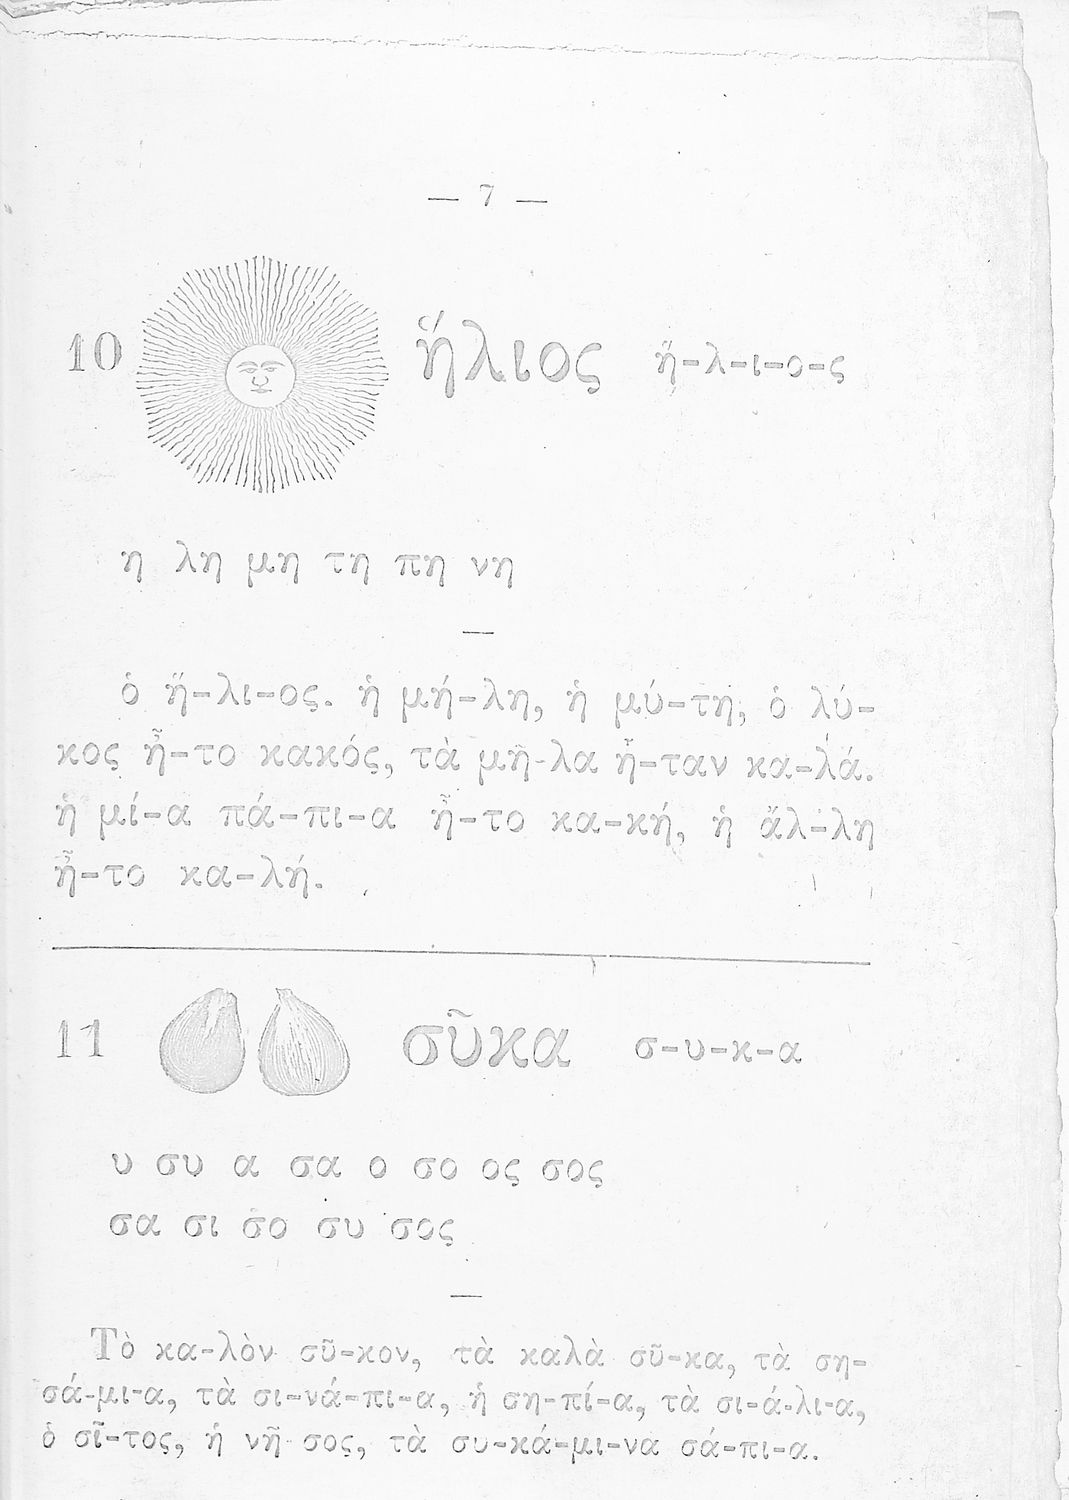 — 7 —
10 ἥλιος ἥ-λ-ι-ο-ς
η λη μη τη πη νη
ὁ ἥ-λι-ος. ἡ μή-λη, ἡ μύ-τη, ὁ λύ-
κος ἦ-το κακός, τὰ μῆ-λα ἦ-ταν κα-λά.
ἡ μί-α πά-πι-α ἦ-το κα-κή, ἡ ἄλ-λη
ἦ-το κα-λή.
11 σῦκα σ-υ-κ-α
υ συ α σα ο σο ος σος
σα σι σο συ σος
Τὸ κα-λὸν σῦ-κον, τὰ καλὰ σῦ-κα, τὰ ση-
σά-μι-α, τὰ σι-νά-πι-α, ἡ ση-πί-α, τὰ σι-ά-λι-α,
ὁ σῖ-τος, ἡ νῆ σος, τὰ συ-κά-μι-να σά-πι-α.